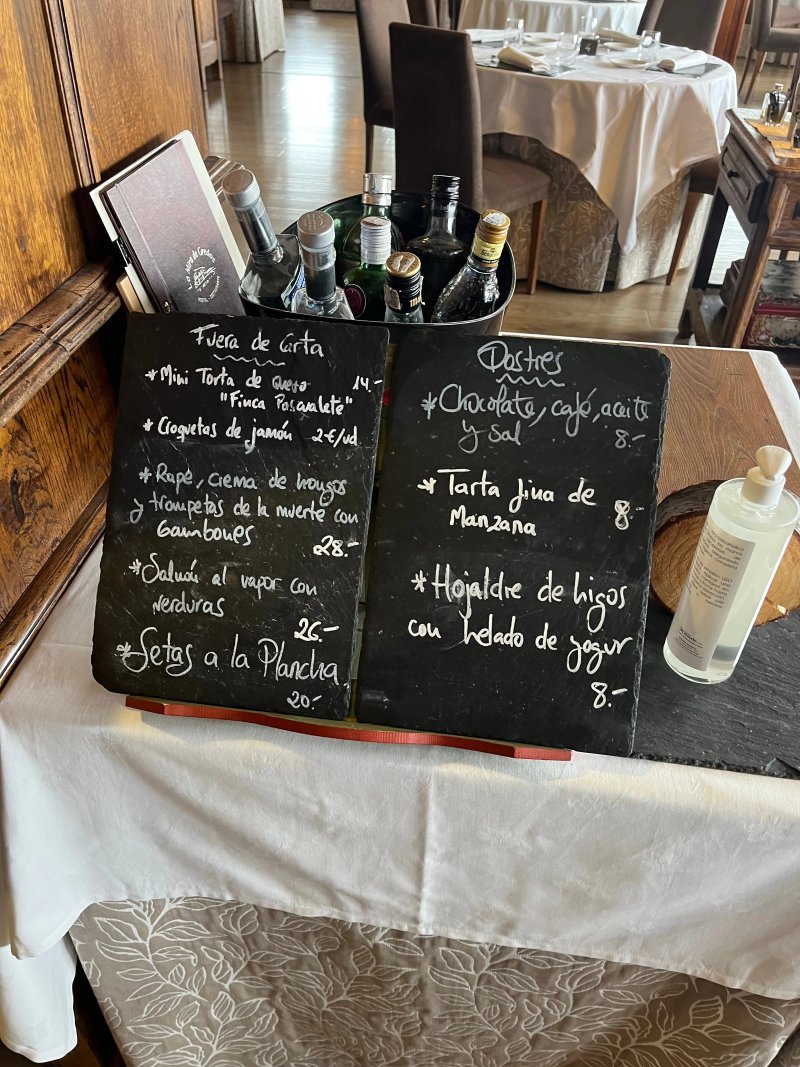 Fuera de Carta
* Mini Torta de Queso 14.-
"Finca Pascualete"
* Croquetas de jamón 2-€/ud
* Rape, crema de hongos
y trompetas de la muerte con
Gambones
28.-
* Salmón al vapor con
verduras
26.-
* Setas a la Plancha
20.-
Postres
* Chocolate, café, aceite
y sal 8.-
* Tarta fina de
Manzana 8
* Hojaldre de higos
con helado de yogur
8.-